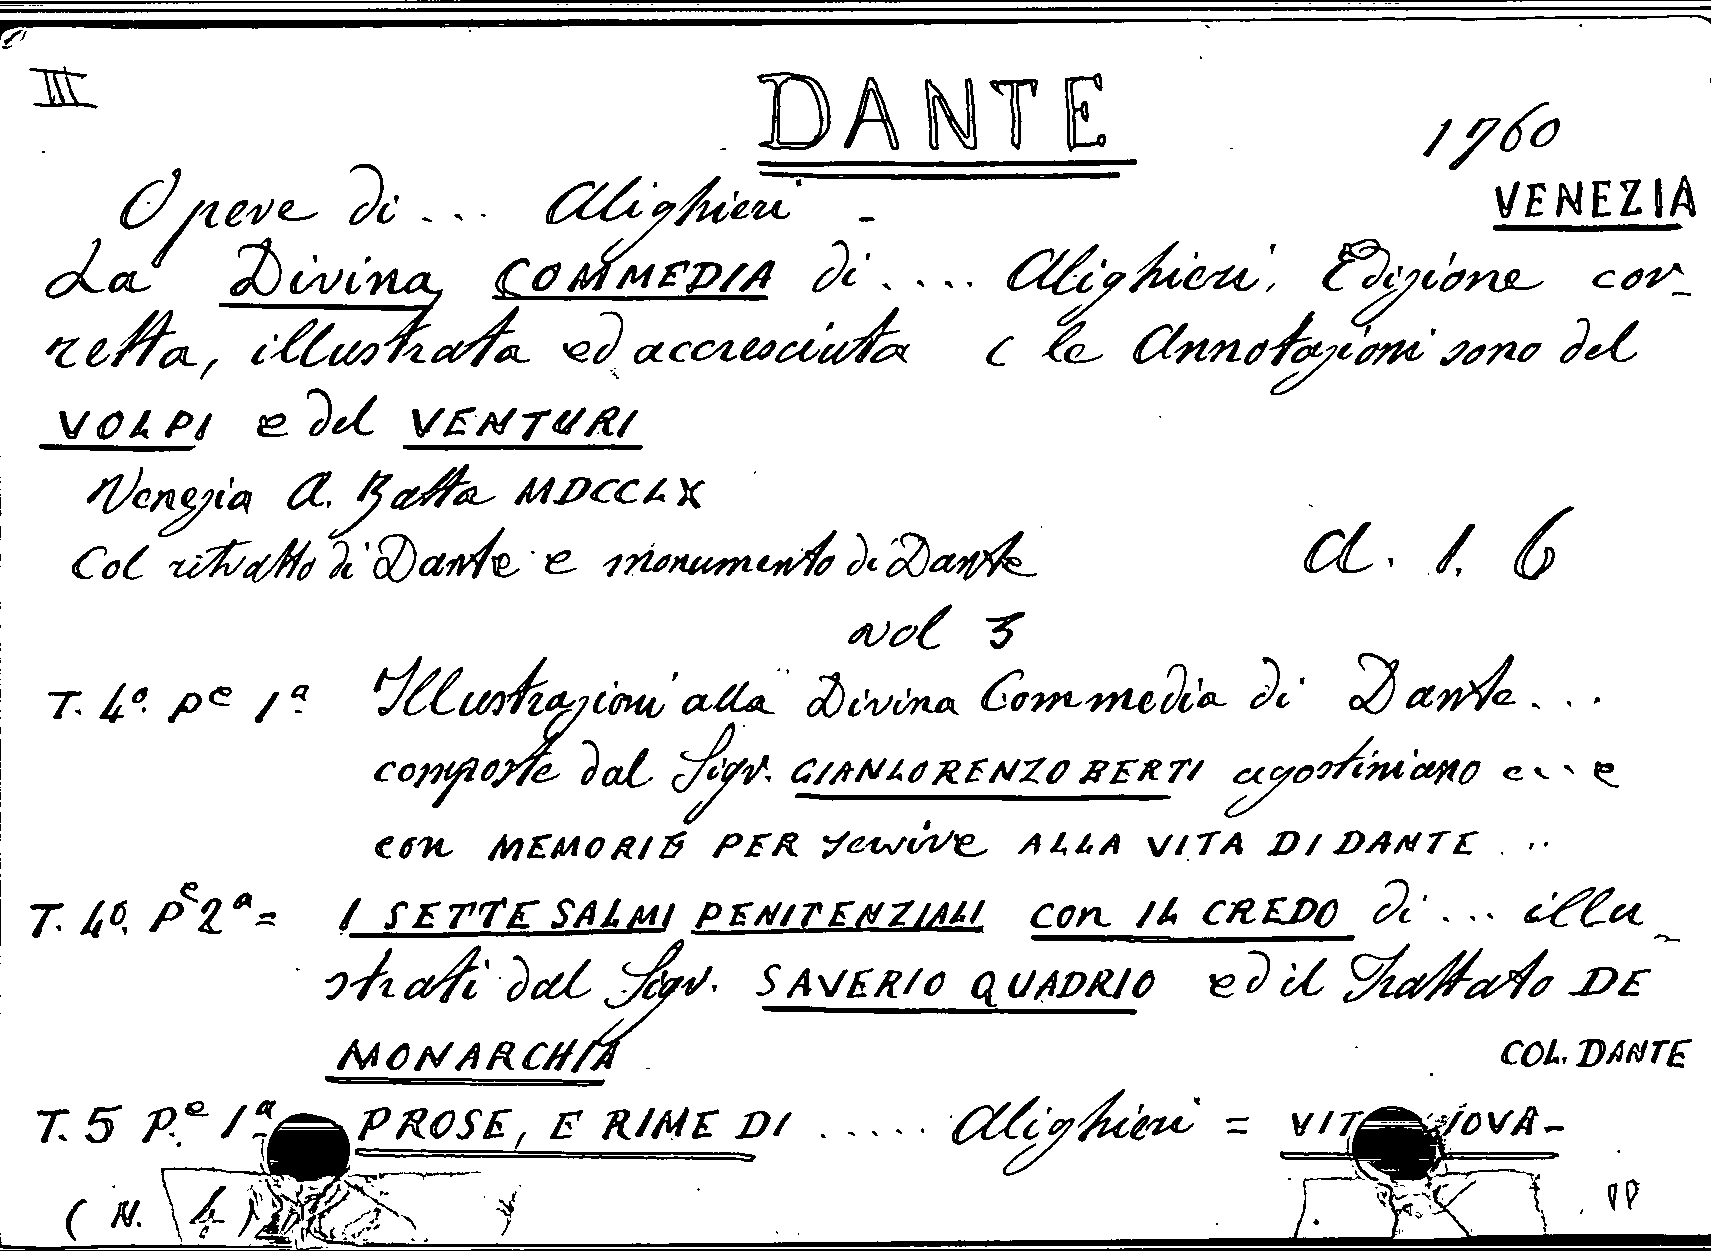 III
DANTE
1760
VENEZIA
Opere di ... Alighieri -
La Divina COMMEDIA di .... Alighieri. Edizione cor-
retta, illustrata ed accresciuta ( le Annotazioni sono del
VOLPI e del VENTURI
Venezia A. Zatta MDCCLX
Col ritratto di Dante e monumento di Dante
A. 1. 6
vol 3
T. 4º. Pe 1ª Illustrazioni alla Divina Commedia di Dante...
composte dal Sigr. GIANLORENZO BERTI agostiniano e... e
con MEMORIE PER servire ALLA VITA DI DANTE ...
T. 4º. Pe 2ª = I SETTE SALMI PENITENZIALI con IL CREDO di ... illu-
strati dal Sigr. SAVERIO QUADRIO ed il Trattato DE
MONARCHIA
COL. DANTE
T. 5 P.e 1ª PROSE, E RIME DI ..... Alighieri =
( N. 4 )